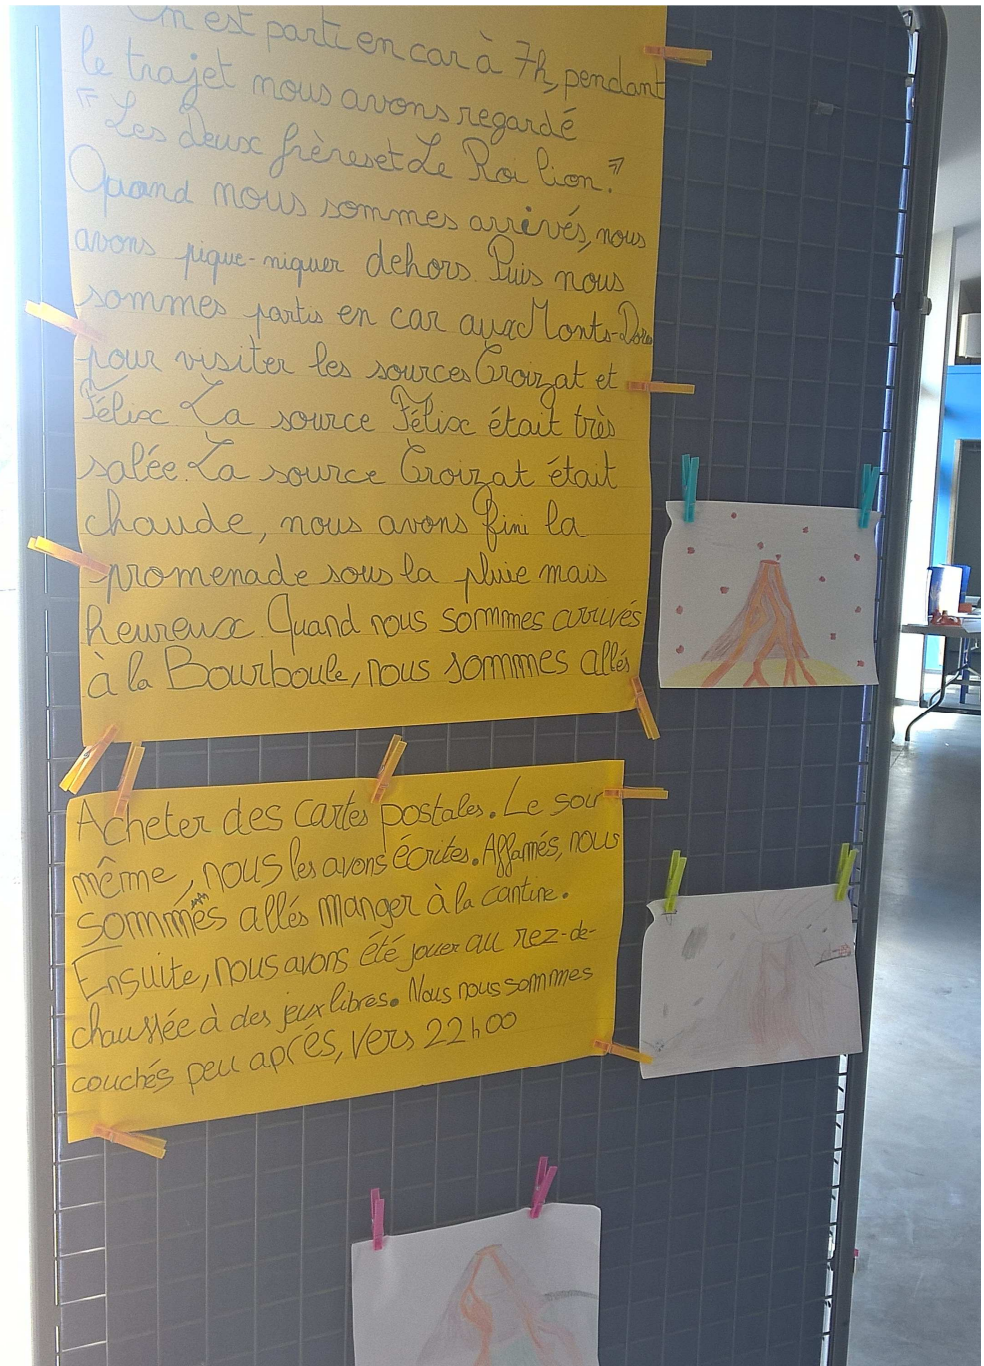 On est parti en car à 7h, pendant
le trajet nous avons regardé
"Les deux frères et Le Roi lion."
Quand nous sommes arrivés, nous
avons pique-niquer dehors. Puis nous
sommes partis en car aux Monts-Dore
pour visiter les sources Croizat et
Félix. La source Félix était très
salée. La source Croizat était
chaude, nous avons fini la
promenade sous la pluie mais
heureux. Quand nous sommes arrivés
à la Bourboule, nous sommes allés
Acheter des cartes postales. Le soir
même, nous les avons écrites. Affamés, nous
sommes allés manger à la cantine.
Ensuite, nous avons été jouer au rez-de-
chaussée à des jeux libres. Nous nous sommes
couchés peu après, vers 22h00